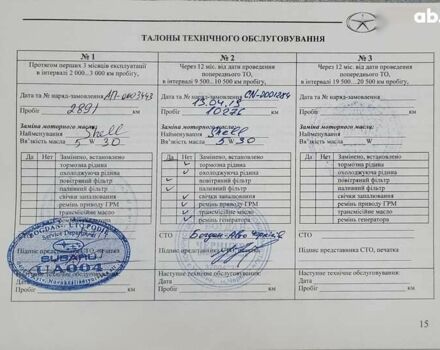 ab
ТАЛОНЫ ТЕХНІЧНОГО ОБСЛУГОВУВАННЯ
№ 1
Протягом перших 3 місяців експлуатації
в інтервалі 2 000...3 000 км пробігу,
Дата та № наряд-замовлення АП-0003443
Пробіг 2891 км
Заміна моторного масла:
Найменування Shell
В'язкість масла 5 W 30
Да Нет Замінено, встановлено
тормозна рідина
охолоджуюча рідина
повітряний фільтр
паливний фільтр
свічки запалювання
ремінь приводу ГРМ
трансмісійне масло
ремінь генератора
СТО
Підпис представника СТО, печатка
SUBARU
UA004
Наступне технічне обслуговування:
Дата
Пробіг км
№ 2
Через 12 міс. від дати проведення
попереднього ТО,
в інтервалі 9 500...10 500 км пробігу,
Дата та № наряд-замовлення CN-0001284
13.04.19
Пробіг 10276 км
Заміна моторного масла:
Найменування Shell
В'язкість масла 5 W 30
Да Нет Замінено, встановлено
тормозна рідина
охолоджуюча рідина
повітряний фільтр
паливний фільтр
свічки запалювання
ремінь приводу ГРМ
трансмісійне масло
ремінь генератора
СТО Богдан-Авто
Підпис представника СТО
Наступне технічне обслуговування:
Дата
Пробіг км
№ 3
Через 12 міс. від дати проведення
попереднього ТО,
в інтервалі 19 500...20 500 км пробігу,
Дата та № наряд-замовлення
Пробіг км
Заміна моторного масла:
Найменування
В'язкість масла W
Да Нет Замінено, встановлено
тормозна рідина
охолоджуюча рідина
повітряний фільтр
паливний фільтр
свічки запалювання
ремінь приводу ГРМ
трансмісійне масло
ремінь генератора
СТО
Підпис представника СТО, печатка
Наступне технічне обслуговування:
Дата
Пробіг км
15